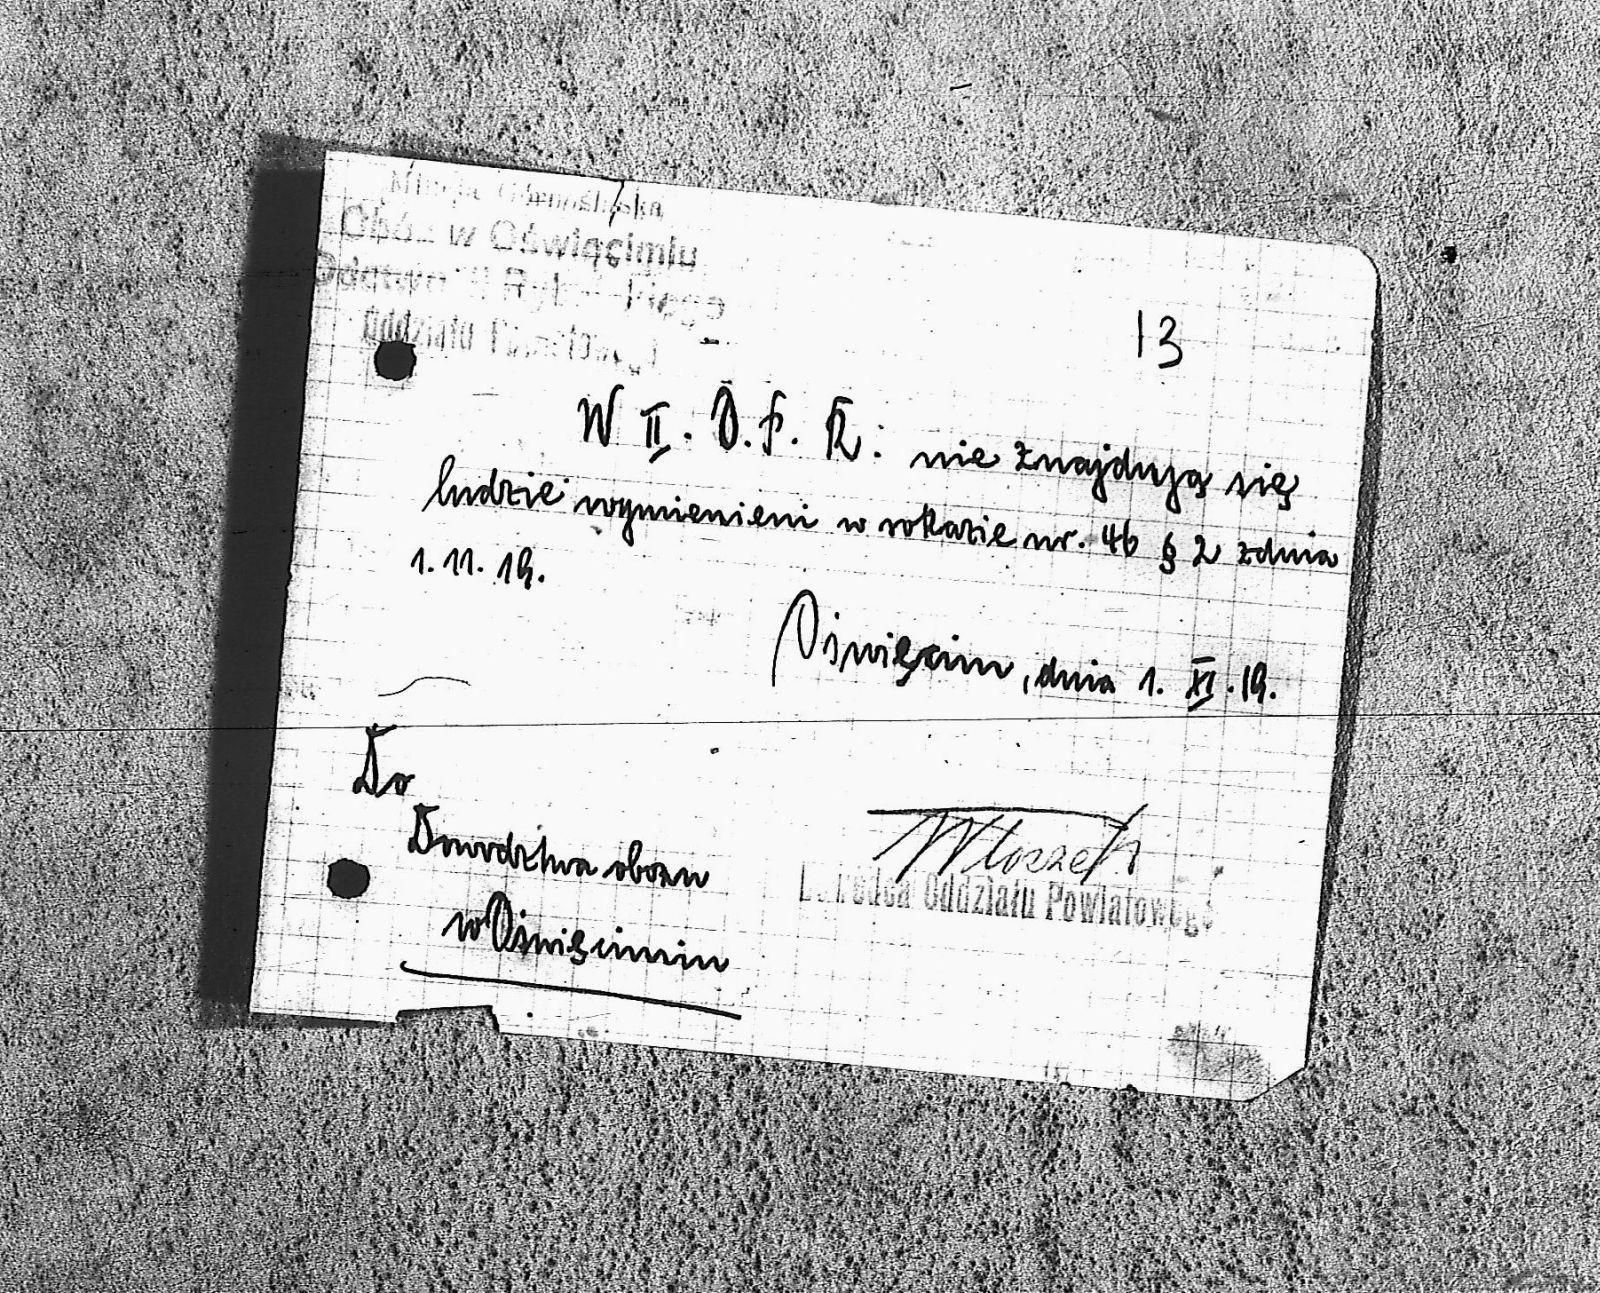 Obóz w Oświęcimiu
Oddziału
13
W II. O. P. R. nie znajdują się
ludzie wymienieni w rokazie nr. 46 § 2 zdnia
1. 11. 19.
Oświęcim, dnia 1. XI. 19.
Do
Dowodztwa obozu
w Oświęcimiu
Oddziału Powiatowego